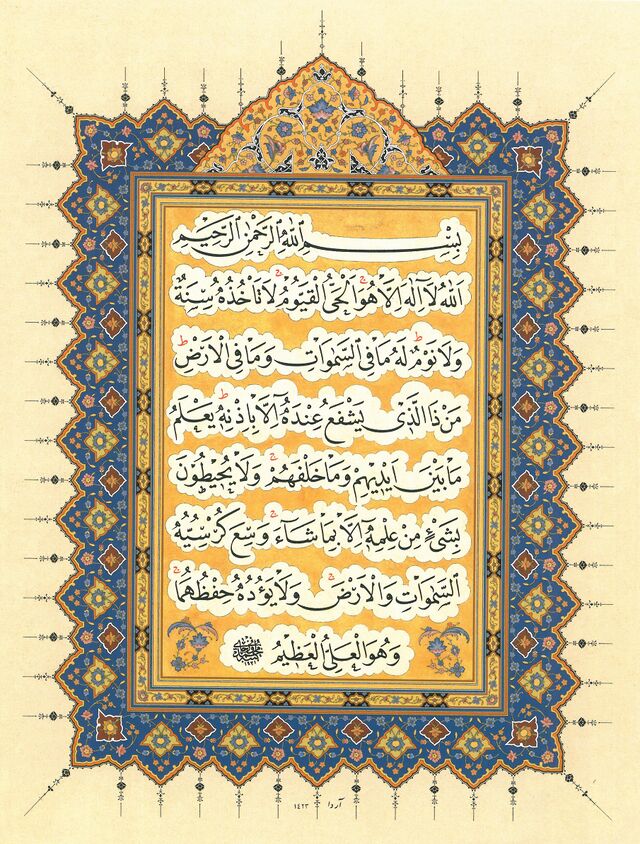 بِسْمِ اللهِ الرَّحْمٰنِ الرَّحِيمِ
اَللهُ لَٓا اِلٰهَ اِلَّا هُوَ اَلْحَيُّ الْقَيُّومُ لَا تَأْخُذُهُ سِنَةٌ
وَلَا نَوْمٌ لَهُ مَا فِي السَّمٰوَاتِ وَمَا فِي الْاَرْضِ
مَنْ ذَا الَّذِي يَشْفَعُ عِنْدَهُٓ اِلَّا بِاِذْنِهِ يَعْلَمُ
مَا بَيْنَ اَيْدِيهِمْ وَمَا خَلْفَهُمْ وَلَا يُحِيطُونَ
بِشَيْءٍ مِنْ عِلْمِهِٓ اِلَّا بِمَا شَٓاءَ وَسِعَ كُرْسِيُّهُ
السَّمٰوَاتِ وَالْاَرْضَ وَلَا يَؤُدُهُ حِفْظُهُمَا
وَهُوَ الْعَلِيُّ الْعَظِيمُ
آردا ١٤٢٣